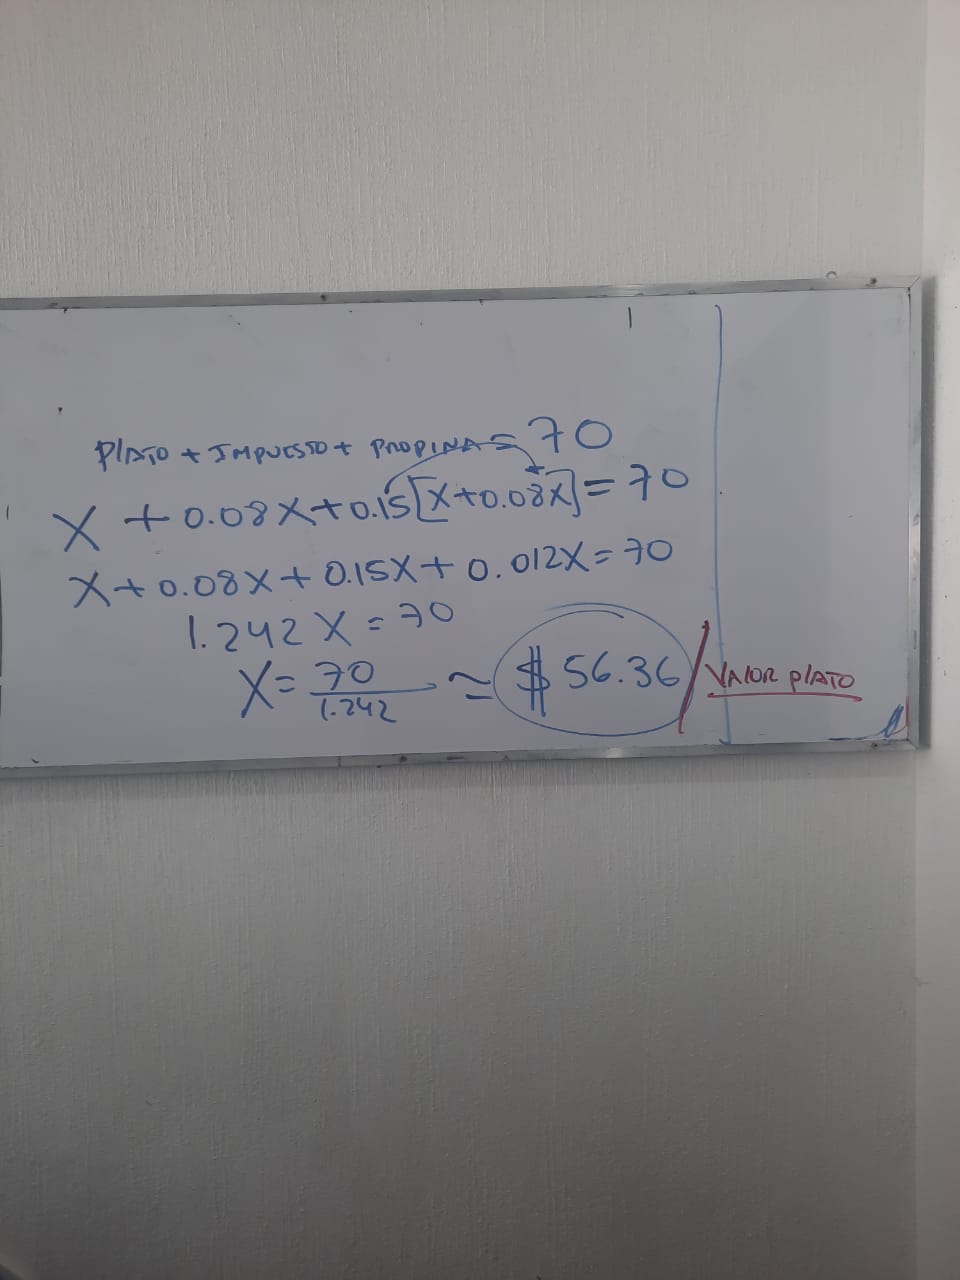 PlATO + IMPUESTO + PROPINA = 70
X + 0.08X + 0.15[X+0.08X] = 70
X + 0.08X + 0.15X + 0.012X = 70
1.242X = 70
X = 70/1.242 ≃ $56.36 / VAlOR PlATO